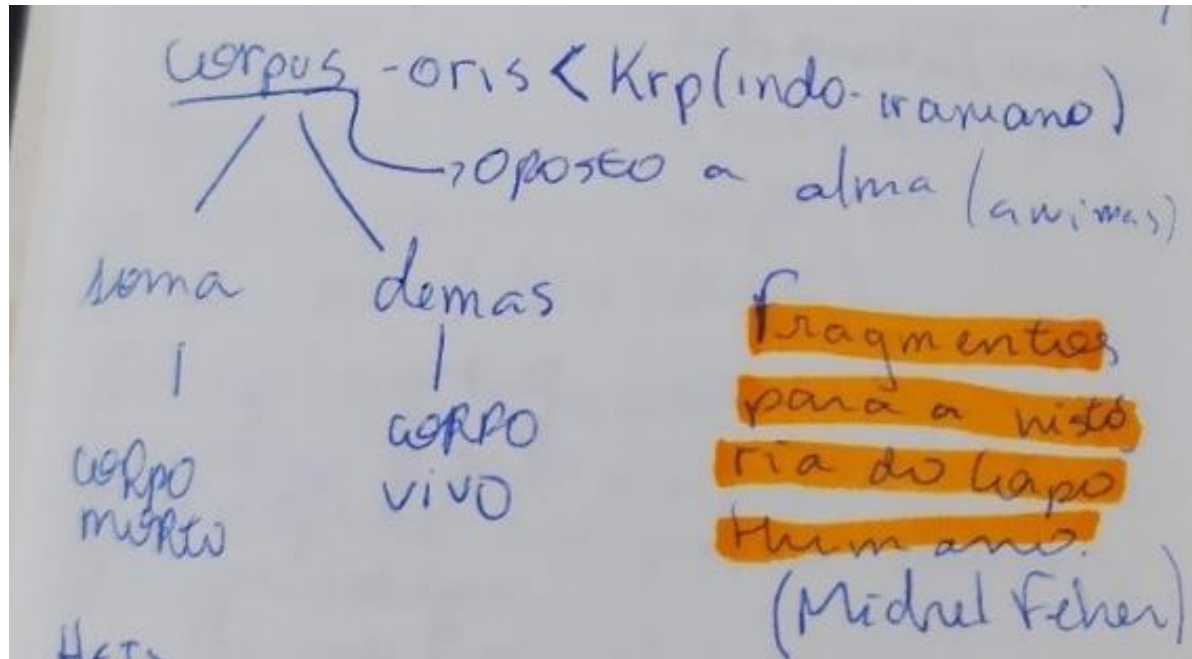 corpus -oris < Krp (indo-iraniano)
→ oposto a alma (animas)
soma demas
corpo
morto
corpo
vivo
Fragmentos
para a histó
ria do Corpo
Humano.
(Michel Feher)